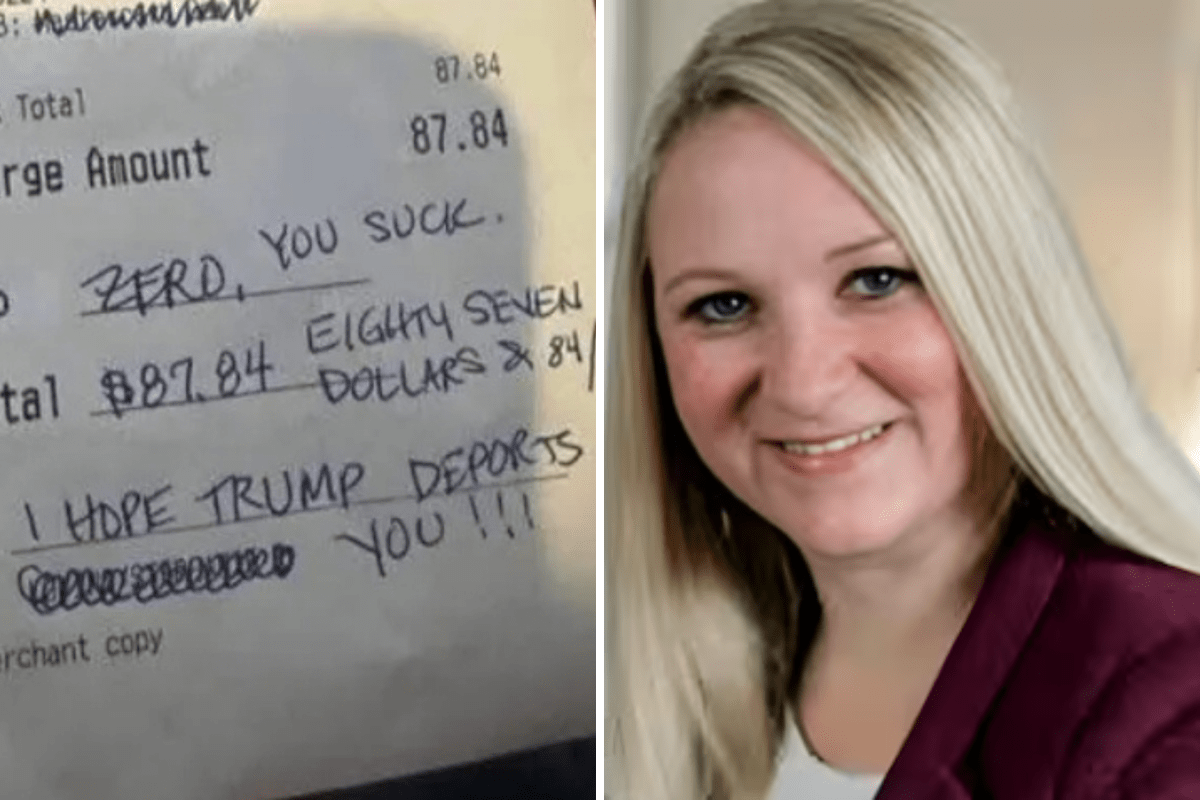 3:
87.84
Total
87.84
rge Amount
ZERO, YOU SUCK.
tal $87.84 EIGHTY SEVEN
DOLLARS & 84/
I HOPE TRUMP DEPORTS
YOU !!!
rchant copy